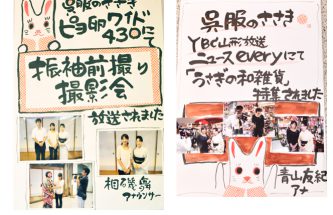 呉服のささき
ピヨ卵ワイド
430にて
振袖前撮り
撮影会
放送されました
相磯舞
アナウンサー
呉服のささき
YBC山形放送
ニュースeveryにて
「うさぎの和雑貨」
特業されました
青山友紀
アナ